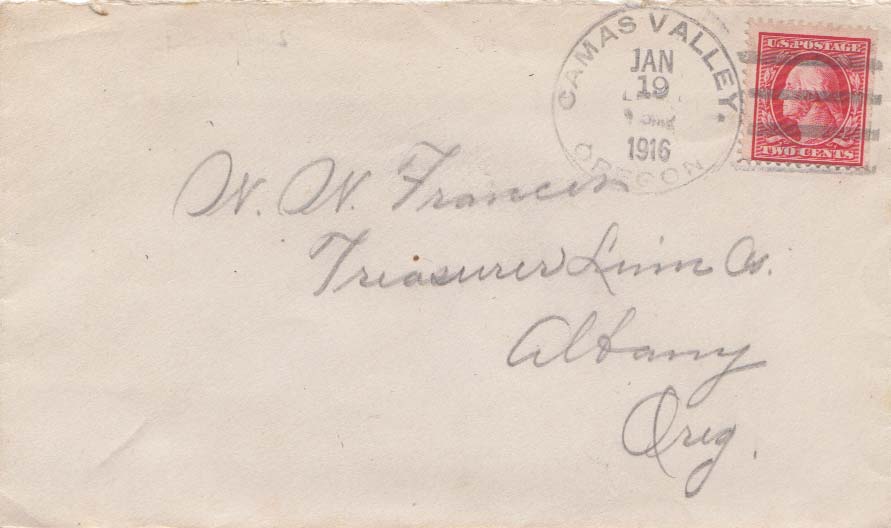 CAMAS VALLEY.
JAN
19
1916
OREGON
U.S. POSTAGE
TWO CENTS
W. W. Francis
Treasurer Linn Co.
Albany
Oreg.